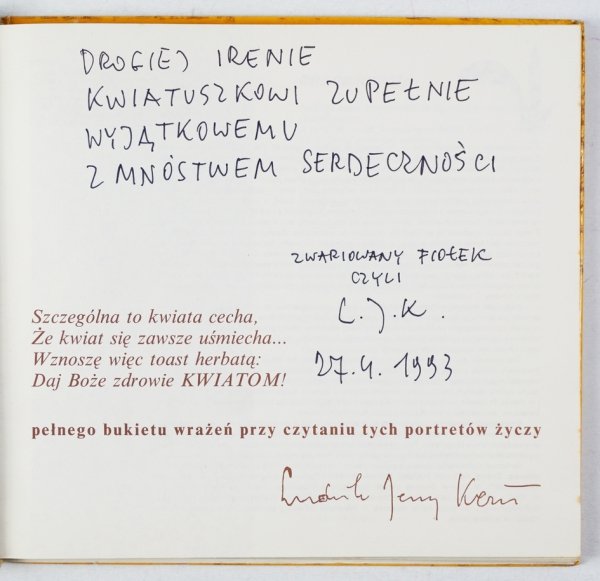 DROGIEJ IRENIE
KWIATUSZKOWI ZUPEŁNIE
WYJĄTKOWEMU
Z MNÓSTWEM SERDECZNOŚCI
ZWARIOWANY FIOŁEK
CZYLI
L.J.K.
27.4.1993
Szczególna to kwiata cecha,
Że kwiat się zawsze uśmiecha...
Wznoszę więc toast herbatą:
Daj Boże zdrowie KWIATOM!
pełnego bukietu wrażeń przy czytaniu tych portretów życzy
Ludwik Jerzy Kern